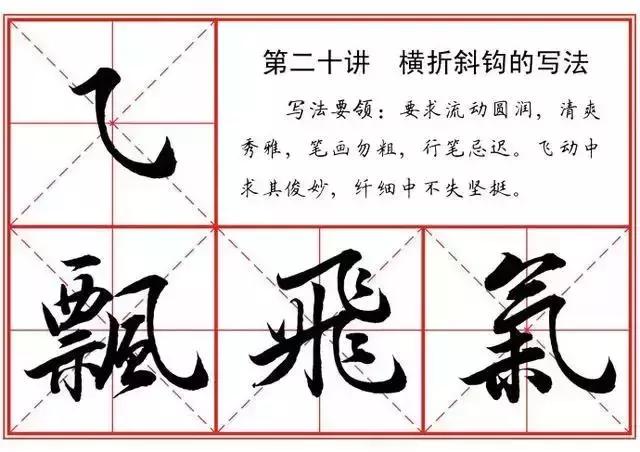 第二十讲 横折斜钩的写法
写法要领：要求流动圆润，清爽
秀雅，笔画勿粗，行笔忌迟。飞动中
求其俊妙，纤细中不失坚挺。
飄 飛 氣